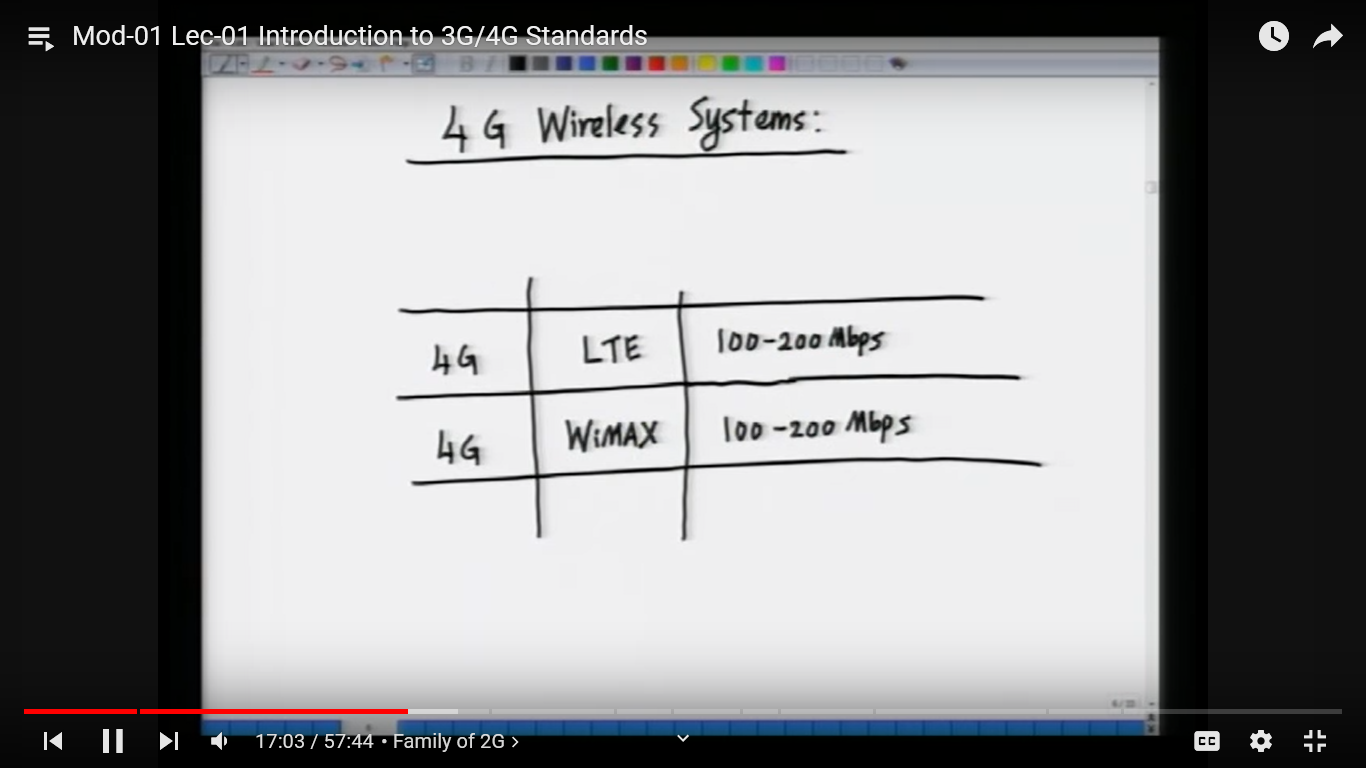 Mod-01 Lec-01 Introduction to 3G/4G Standards
B I
4G Wireless Systems:
4G LTE 100-200 Mbps
4G WiMAX 100-200 Mbps
17:03 / 57:44 • Family of 2G ›
CC